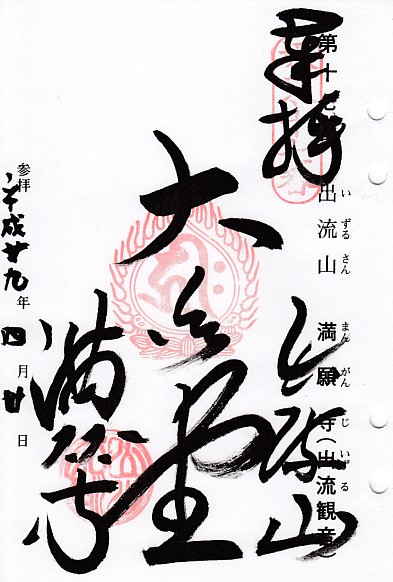 奉拝
第十七番 出流山 満願寺(出流観音)
いずるさん まんがんじ いずる
出流山
大悲堂
満願寺
参拝 平成廿九年 四月廿日